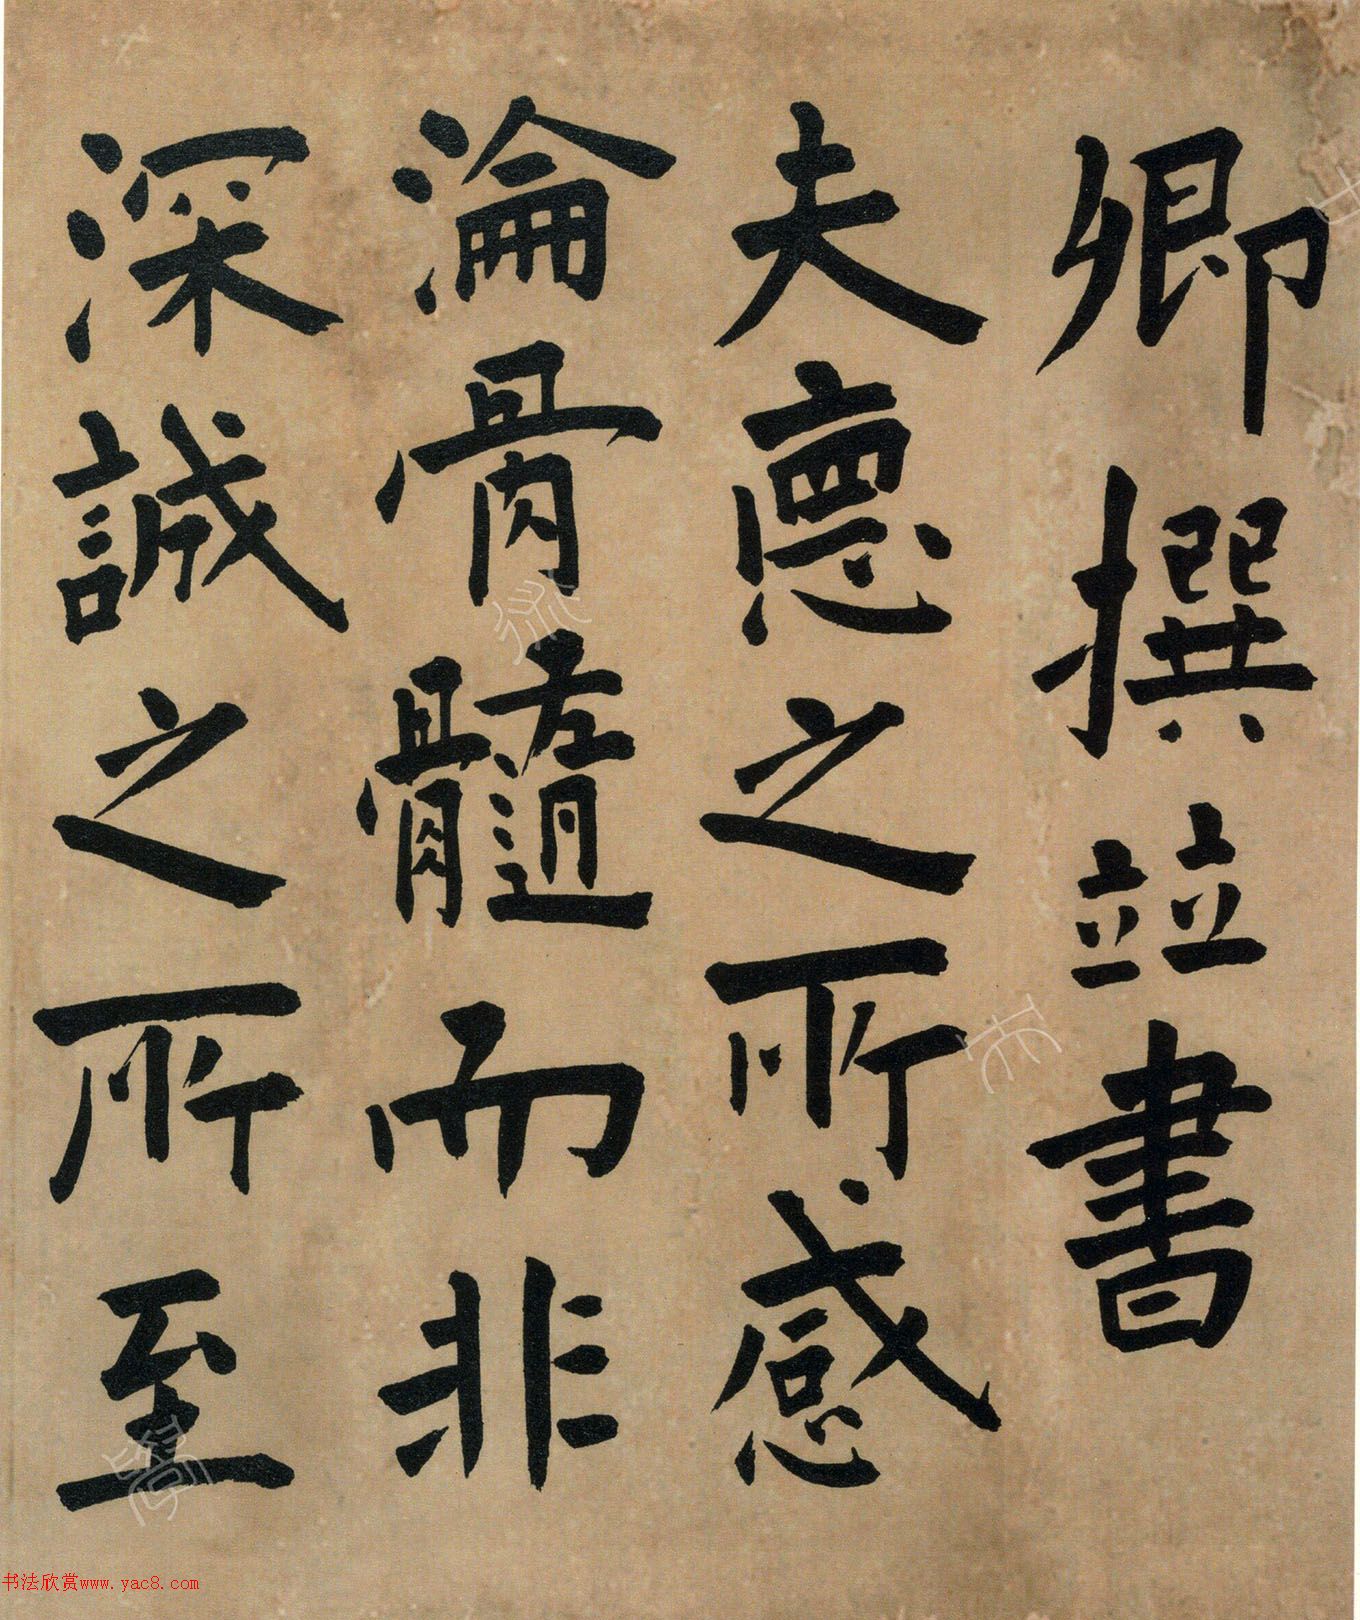 卿撰並書
夫惪之所感
淪骨髓而非
深誠之所至
书法欣赏www.yac8.com